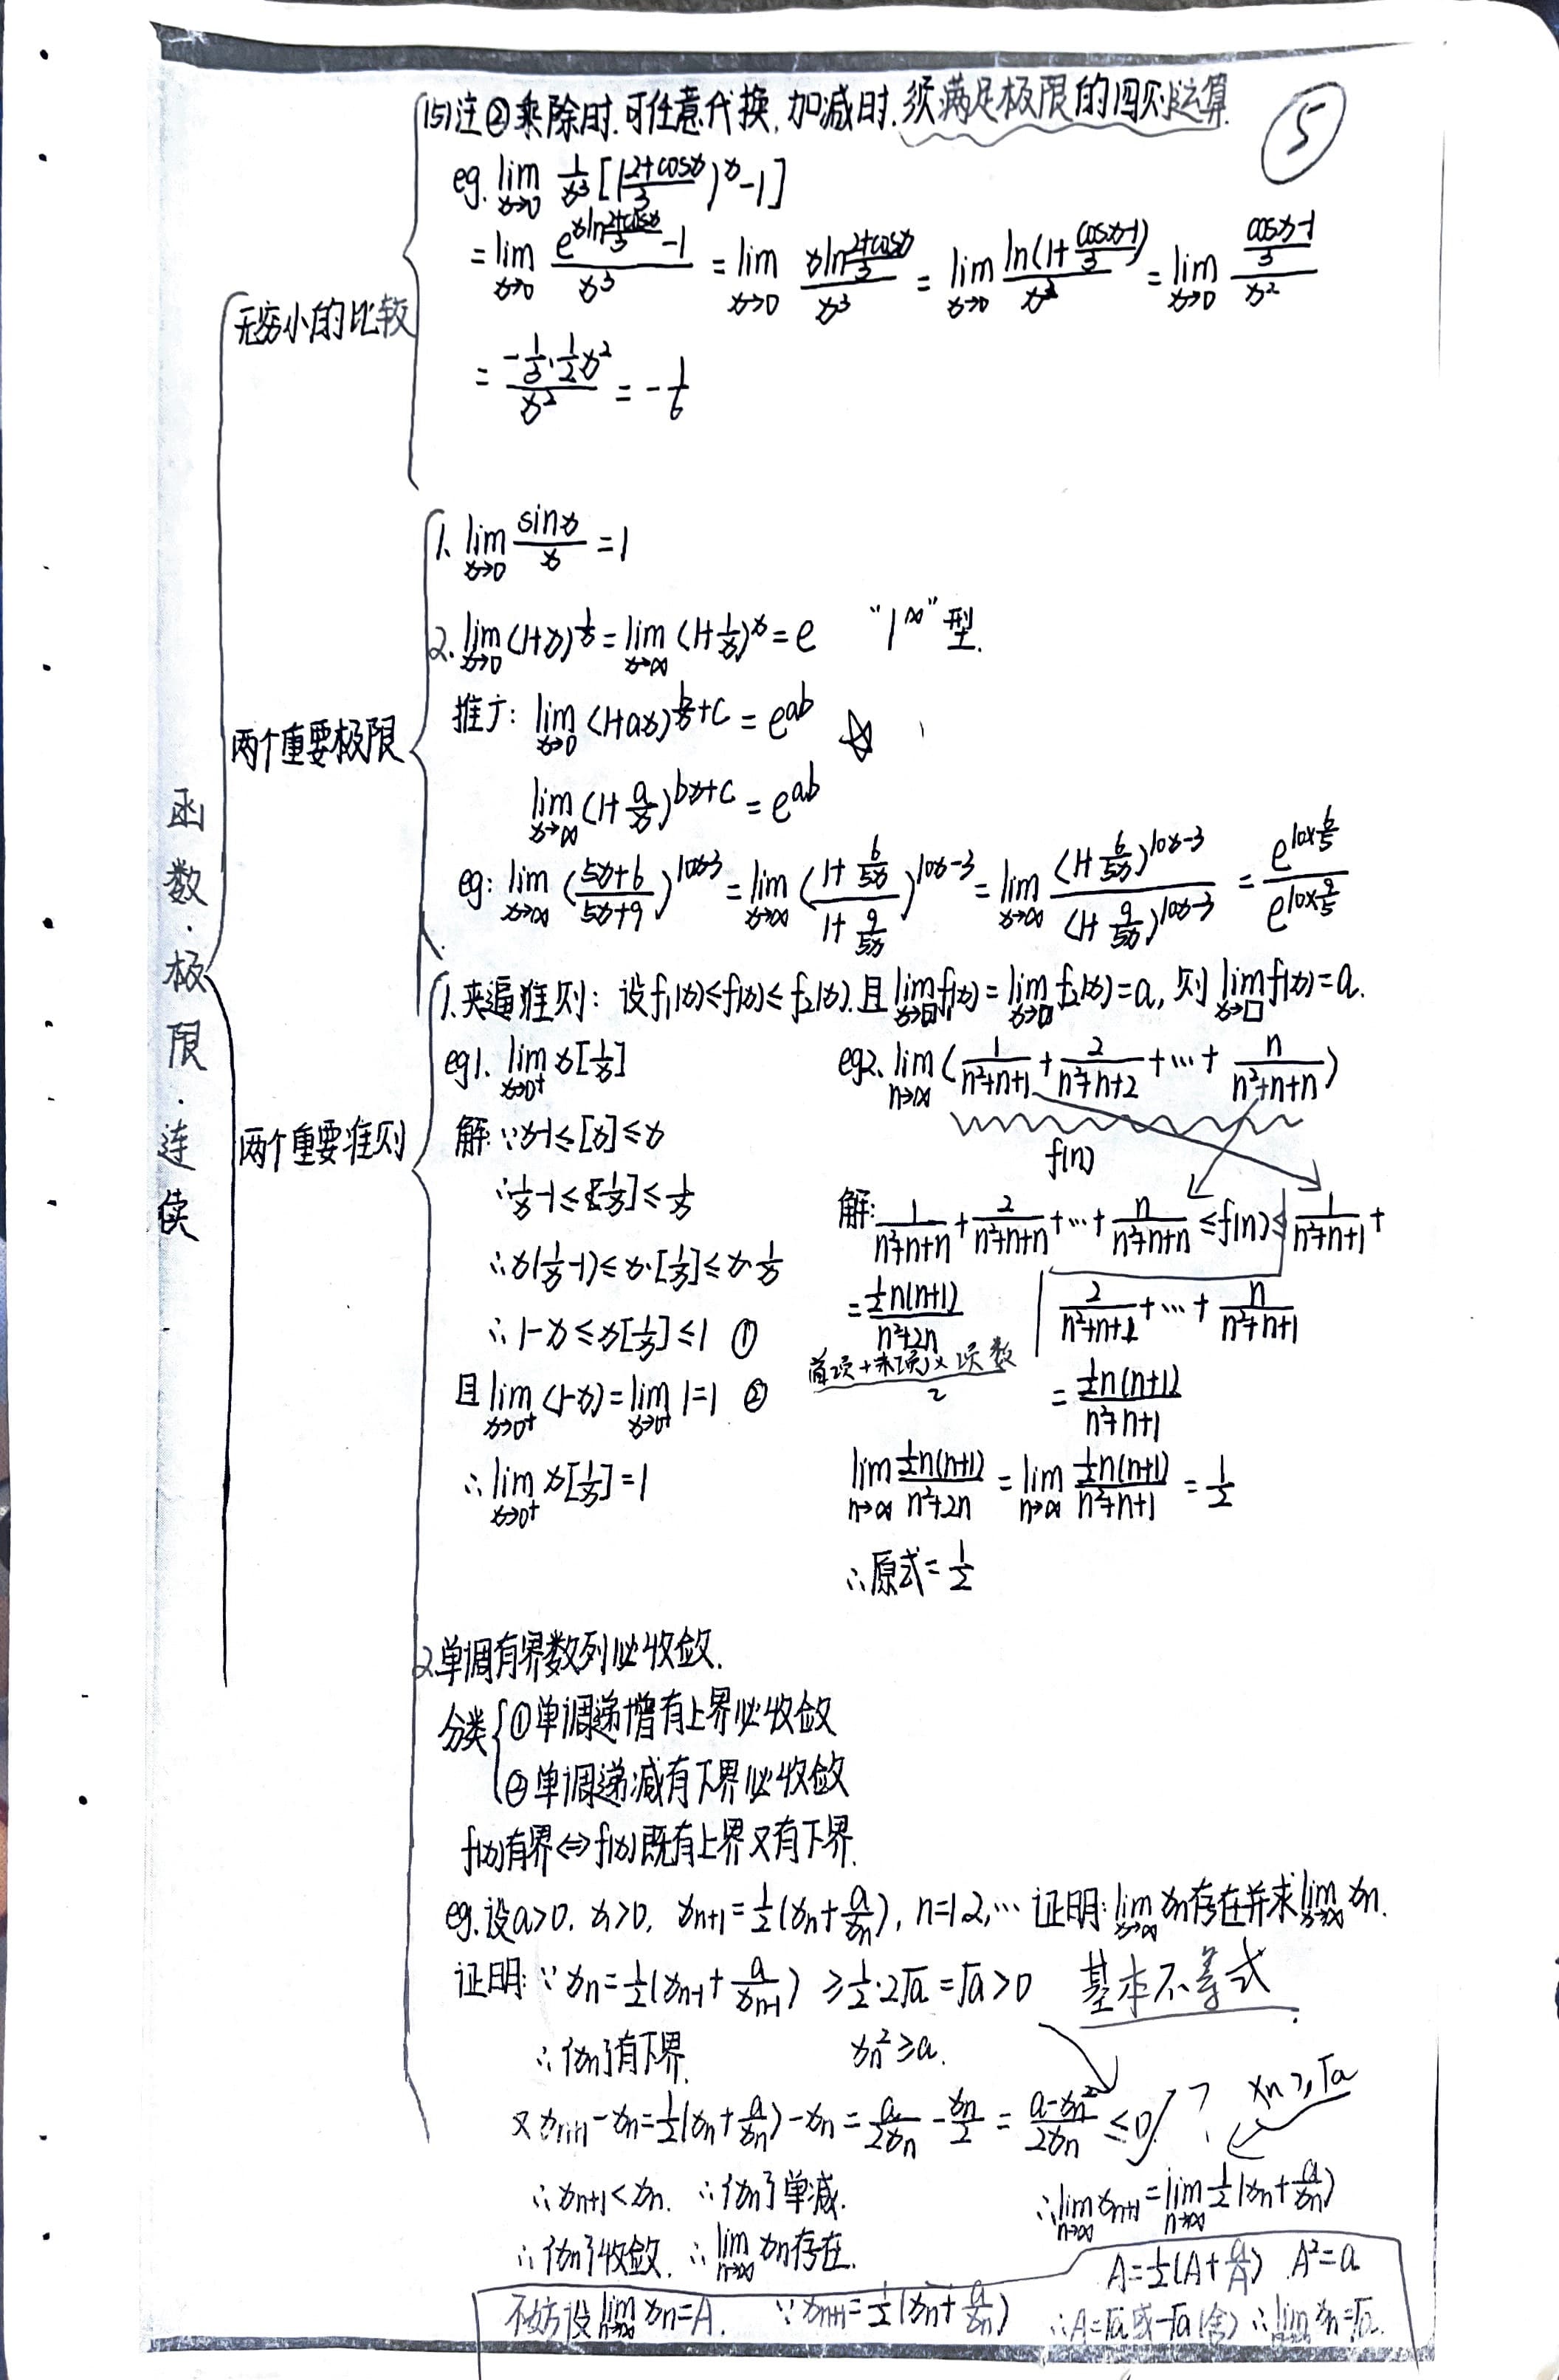 ⑤
函数·极限·连续
无穷小的比较
(5)注②乘除时.可任意代换,加减时.须满足极限的四则运算.
eg. lim_{x→0} 1/x³ [(2+cosx/3)^x - 1]
= lim_{x→0} (e^{xln (2+cosx)/3} - 1)/x³ = lim_{x→0} (xln (2+cosx)/3)/x³ = lim_{x→0} ln(1+(cosx-1)/3)/x² = lim_{x→0} ((cosx-1)/3)/x²
= (-1/3·1/2x²)/x² = -1/6
两个重要极限
1. lim_{x→0} sinx/x = 1
2. lim_{x→0} (1+x)^{1/x} = lim_{x→∞} (1+1/x)^x = e “1^∞”型.
推广: lim_{x→0} (1+ax)^{b/x+c} = e^{ab} ☆
lim_{x→∞} (1+a/x)^{bx+c} = e^{ab}
eg: lim_{x→∞} ((5x+6)/(5x+9))^{10x-3} = lim_{x→∞} ((1+6/5x)/(1+9/5x))^{10x-3} = lim_{x→∞} (1+6/5x)^{10x-3}/(1+9/5x)^{10x-3} = e^{10×6/5}/e^{10×9/5}
两个重要准则
1.夹逼准则: 设f₁(x)≤f(x)≤f₂(x).且 lim_{x→□} f₁(x) = lim_{x→□} f₂(x) = a, 则 lim_{x→□} f(x) = a.
eg1. lim_{x→0⁺} x[1/x]
解: ∵x-1≤[x]≤x
∴1/x-1≤[1/x]≤1/x
∴x(1/x-1)≤x·[1/x]≤x·1/x
∴1-x≤x[1/x]≤1 ①
且 lim_{x→0⁺} (1-x) = lim_{x→0⁺} 1 = 1 ②
∴ lim_{x→0⁺} x[1/x] = 1
eg2. lim_{n→∞} (1/(n²+n+1) + 2/(n²+n+2) + ⋯ + n/(n²+n+n))
f(n)
解: 1/(n²+n+n) + 2/(n²+n+n) + ⋯ + n/(n²+n+n) ≤ f(n) ≤ 1/(n²+n+1) +
2/(n²+n+1) + ⋯ + n/(n²+n+1)
= ½n(n+1)/(n²+2n)
(首项+末项)×项数/2
= ½n(n+1)/(n²+n+1)
lim_{n→∞} ½n(n+1)/(n²+2n) = lim_{n→∞} ½n(n+1)/(n²+n+1) = 1/2
∴原式=1/2
2.单调有界数列必收敛.
分类 ①单调递增有上界必收敛
②单调递减有下界必收敛
f(x)有界⇔f(x)既有上界又有下界.
eg.设a>0. x₁>0, x_{n+1}=1/2(x_n+a/x_n), n=1,2,⋯ 证明: lim_{x→∞} x_n存在并求 lim_{x→∞} x_n.
证明: ∵x_n=1/2(x_{n-1}+a/x_{n-1}) ≥1/2·2√a=√a>0 基本不等式.
∴{x_n}有下界. x_n²≥a.
又x_{n+1}-x_n=1/2(x_n+a/x_n)-x_n=a/2x_n-x_n/2=(a-x_n²)/2x_n≤0 ? x_n≥√a
∴x_{n+1}<x_n. ∴{x_n}单减.
∴{x_n}收敛. ∴ lim_{n→∞} x_n存在.
不妨设 lim_{n→∞} x_n=A. ∵x_{n+1}=1/2(x_n+a/x_n)
∴ lim_{n→∞} x_{n+1} = lim_{n→∞} 1/2(x_n+a/x_n)
A=1/2(A+a/A) A²=a
∴A=√a或-√a(舍) ∴ lim_{n→∞} x_n=√a.